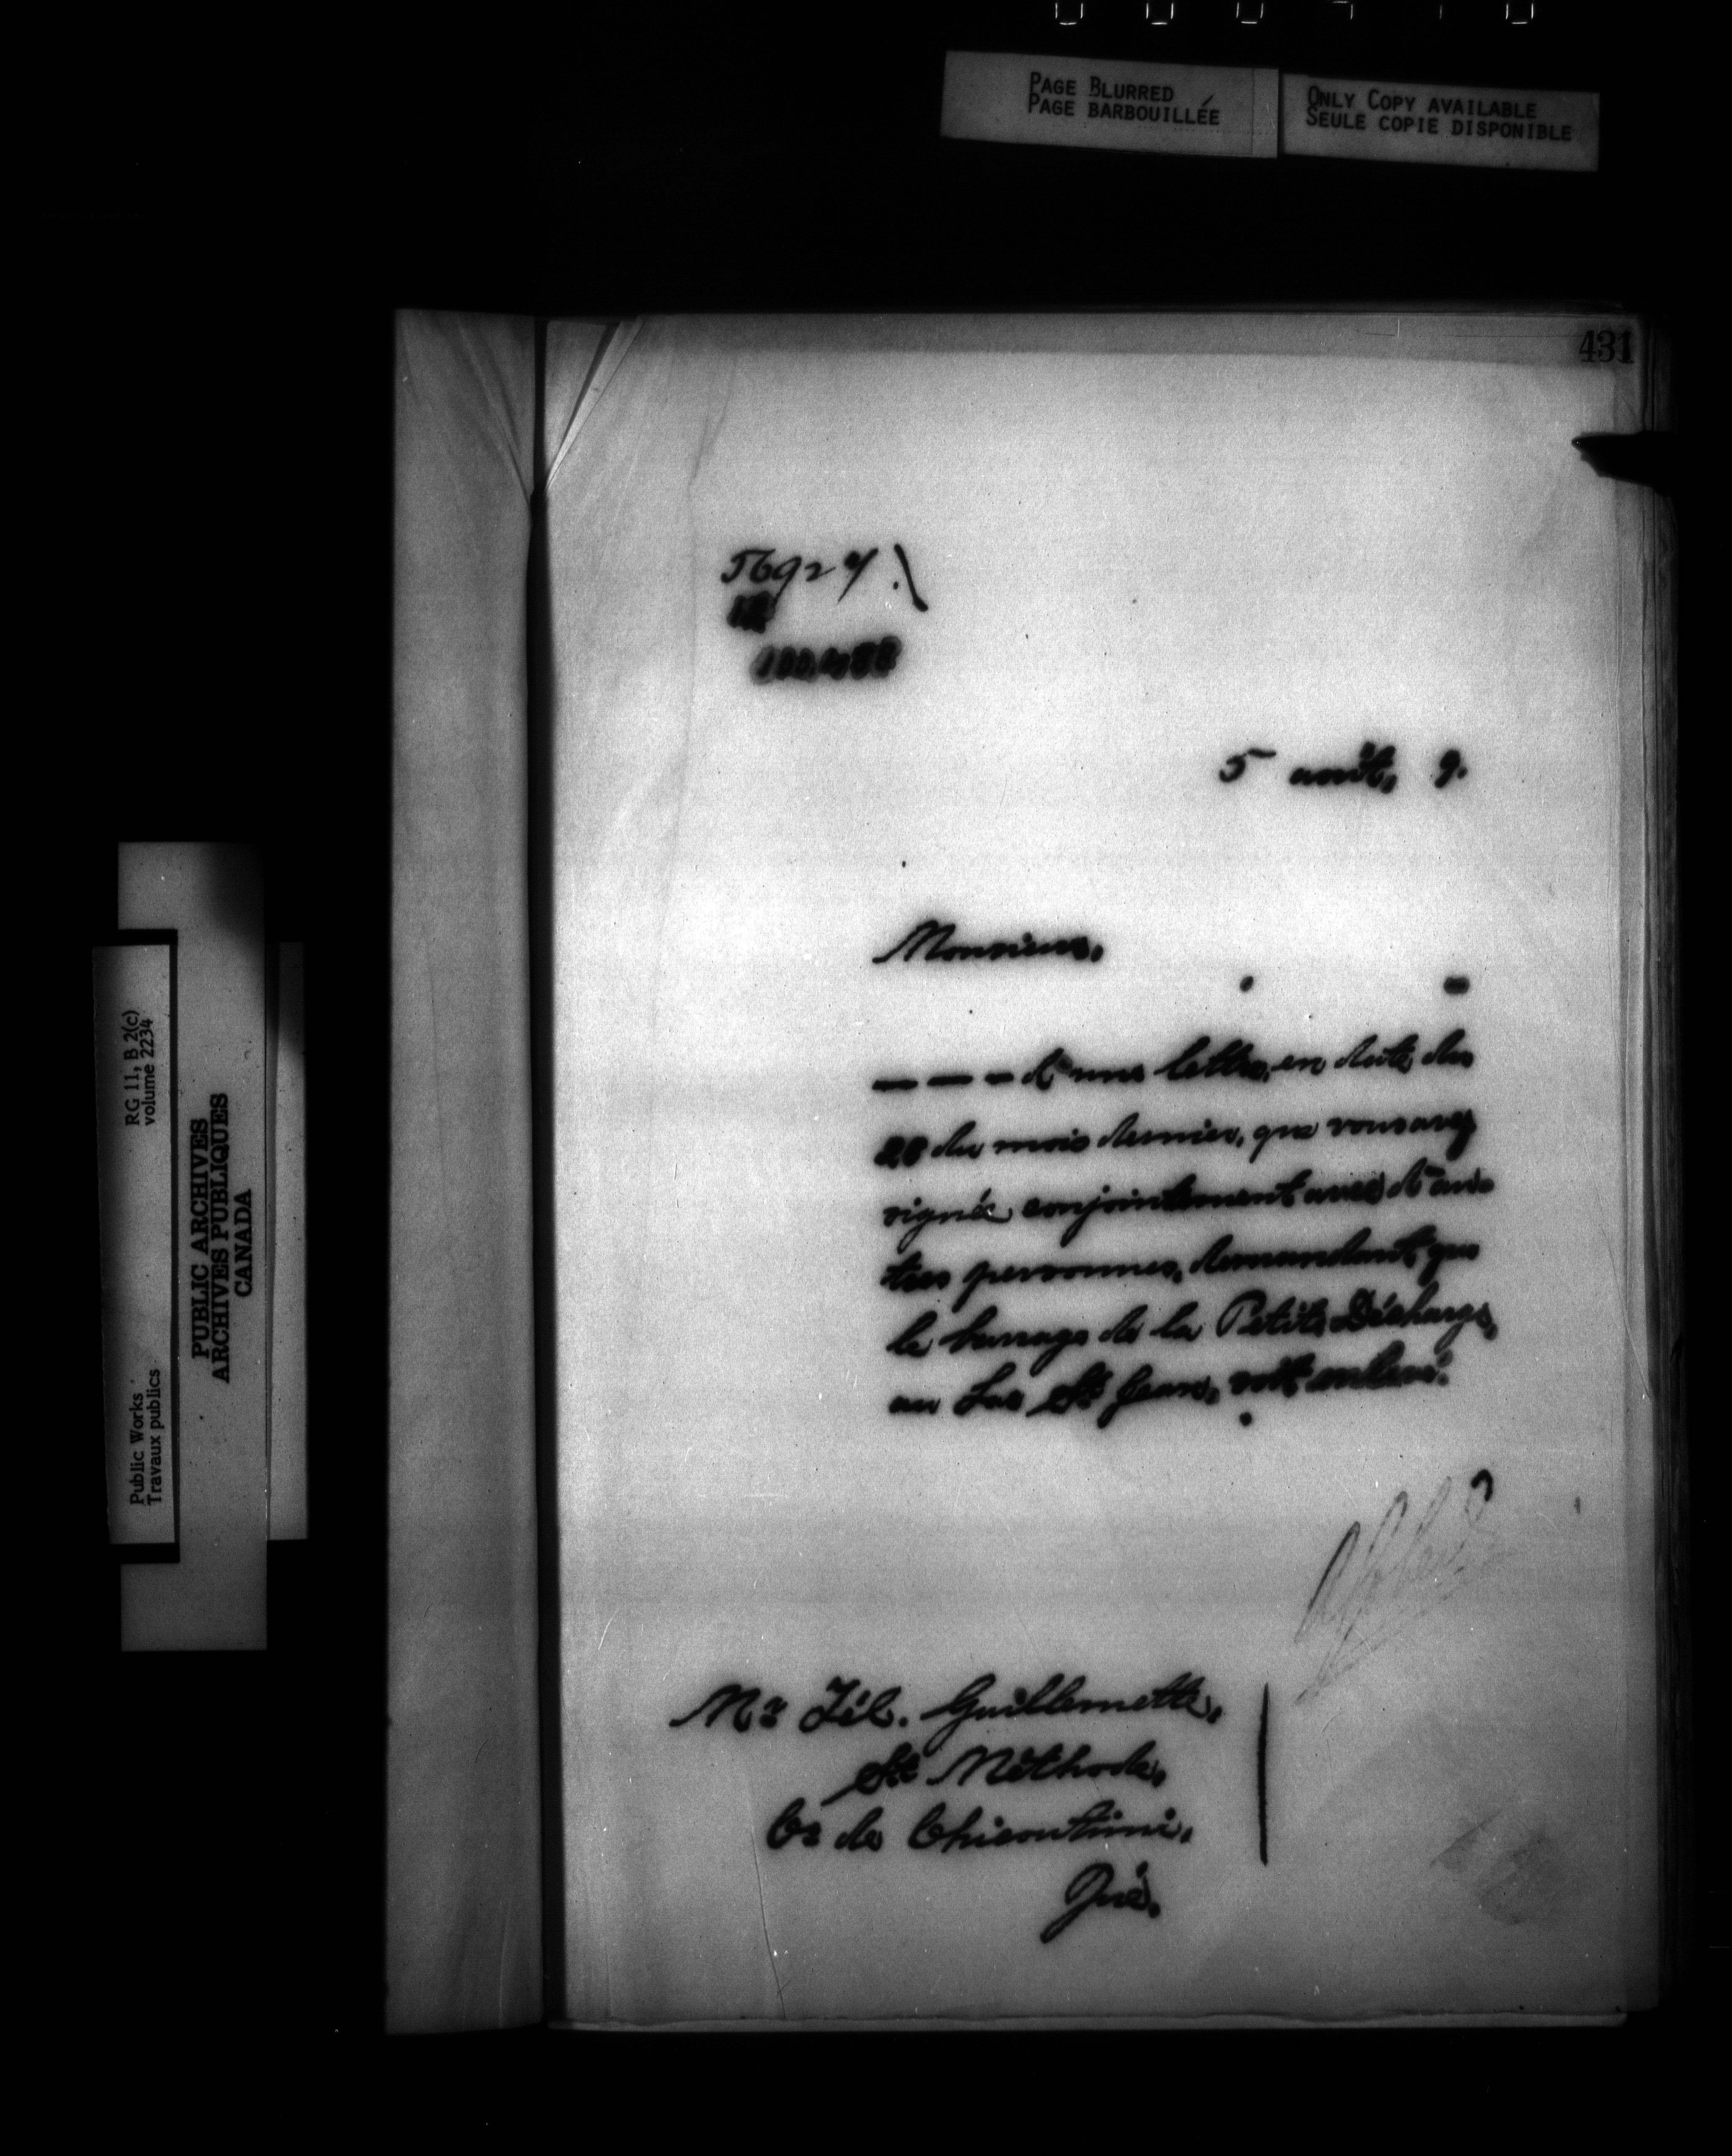 PAGE BLURRED
PAGE BARBOUILLÉE
ONLY COPY AVAILABLE
SEULE COPIE DISPONIBLE
431
5 août, 9.
Monsieur,
— — — d'une lettre, en date du
28 du mois dernier, que vous avez
signée conjointement avec d'au-
tres personnes, demandant que
le barrage de la Petite Décharge,
au Lac St Jean, soit enlevé.
Mr Tél. Guillemette,
St Méthode,
Co de Chicoutimi,
Qué.
RG 11, B 2(c)
volume 2234
Public Works
Travaux publics
PUBLIC ARCHIVES
ARCHIVES PUBLIQUES
CANADA